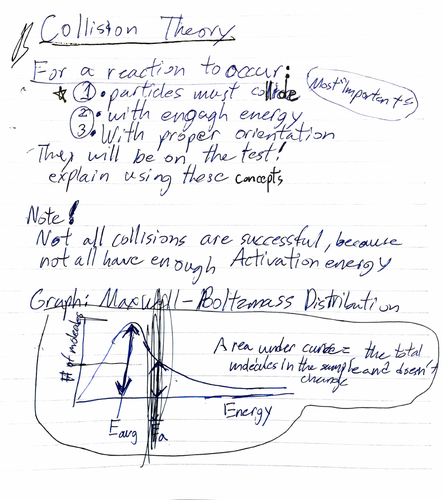 B Collision Theory
For a reaction to occur:
① • particles must collide
Most importants
② • with engagh energy
③ • With proper orientation
They will be on the test!
explain using these concepts
Note!
Not all collisions are successful, because
not all have enough Activation energy
Graph: Maxwell-Boltzmass Distribution
# of molecules
Area under curve = the total
molecules in the sample and doesn't
change
Energy
Eavg
Ea